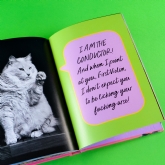 I AM THE
CONDUCTOR!
And when I point
at you, First Violin,
I don't expect you
to be licking your
fucking arse!